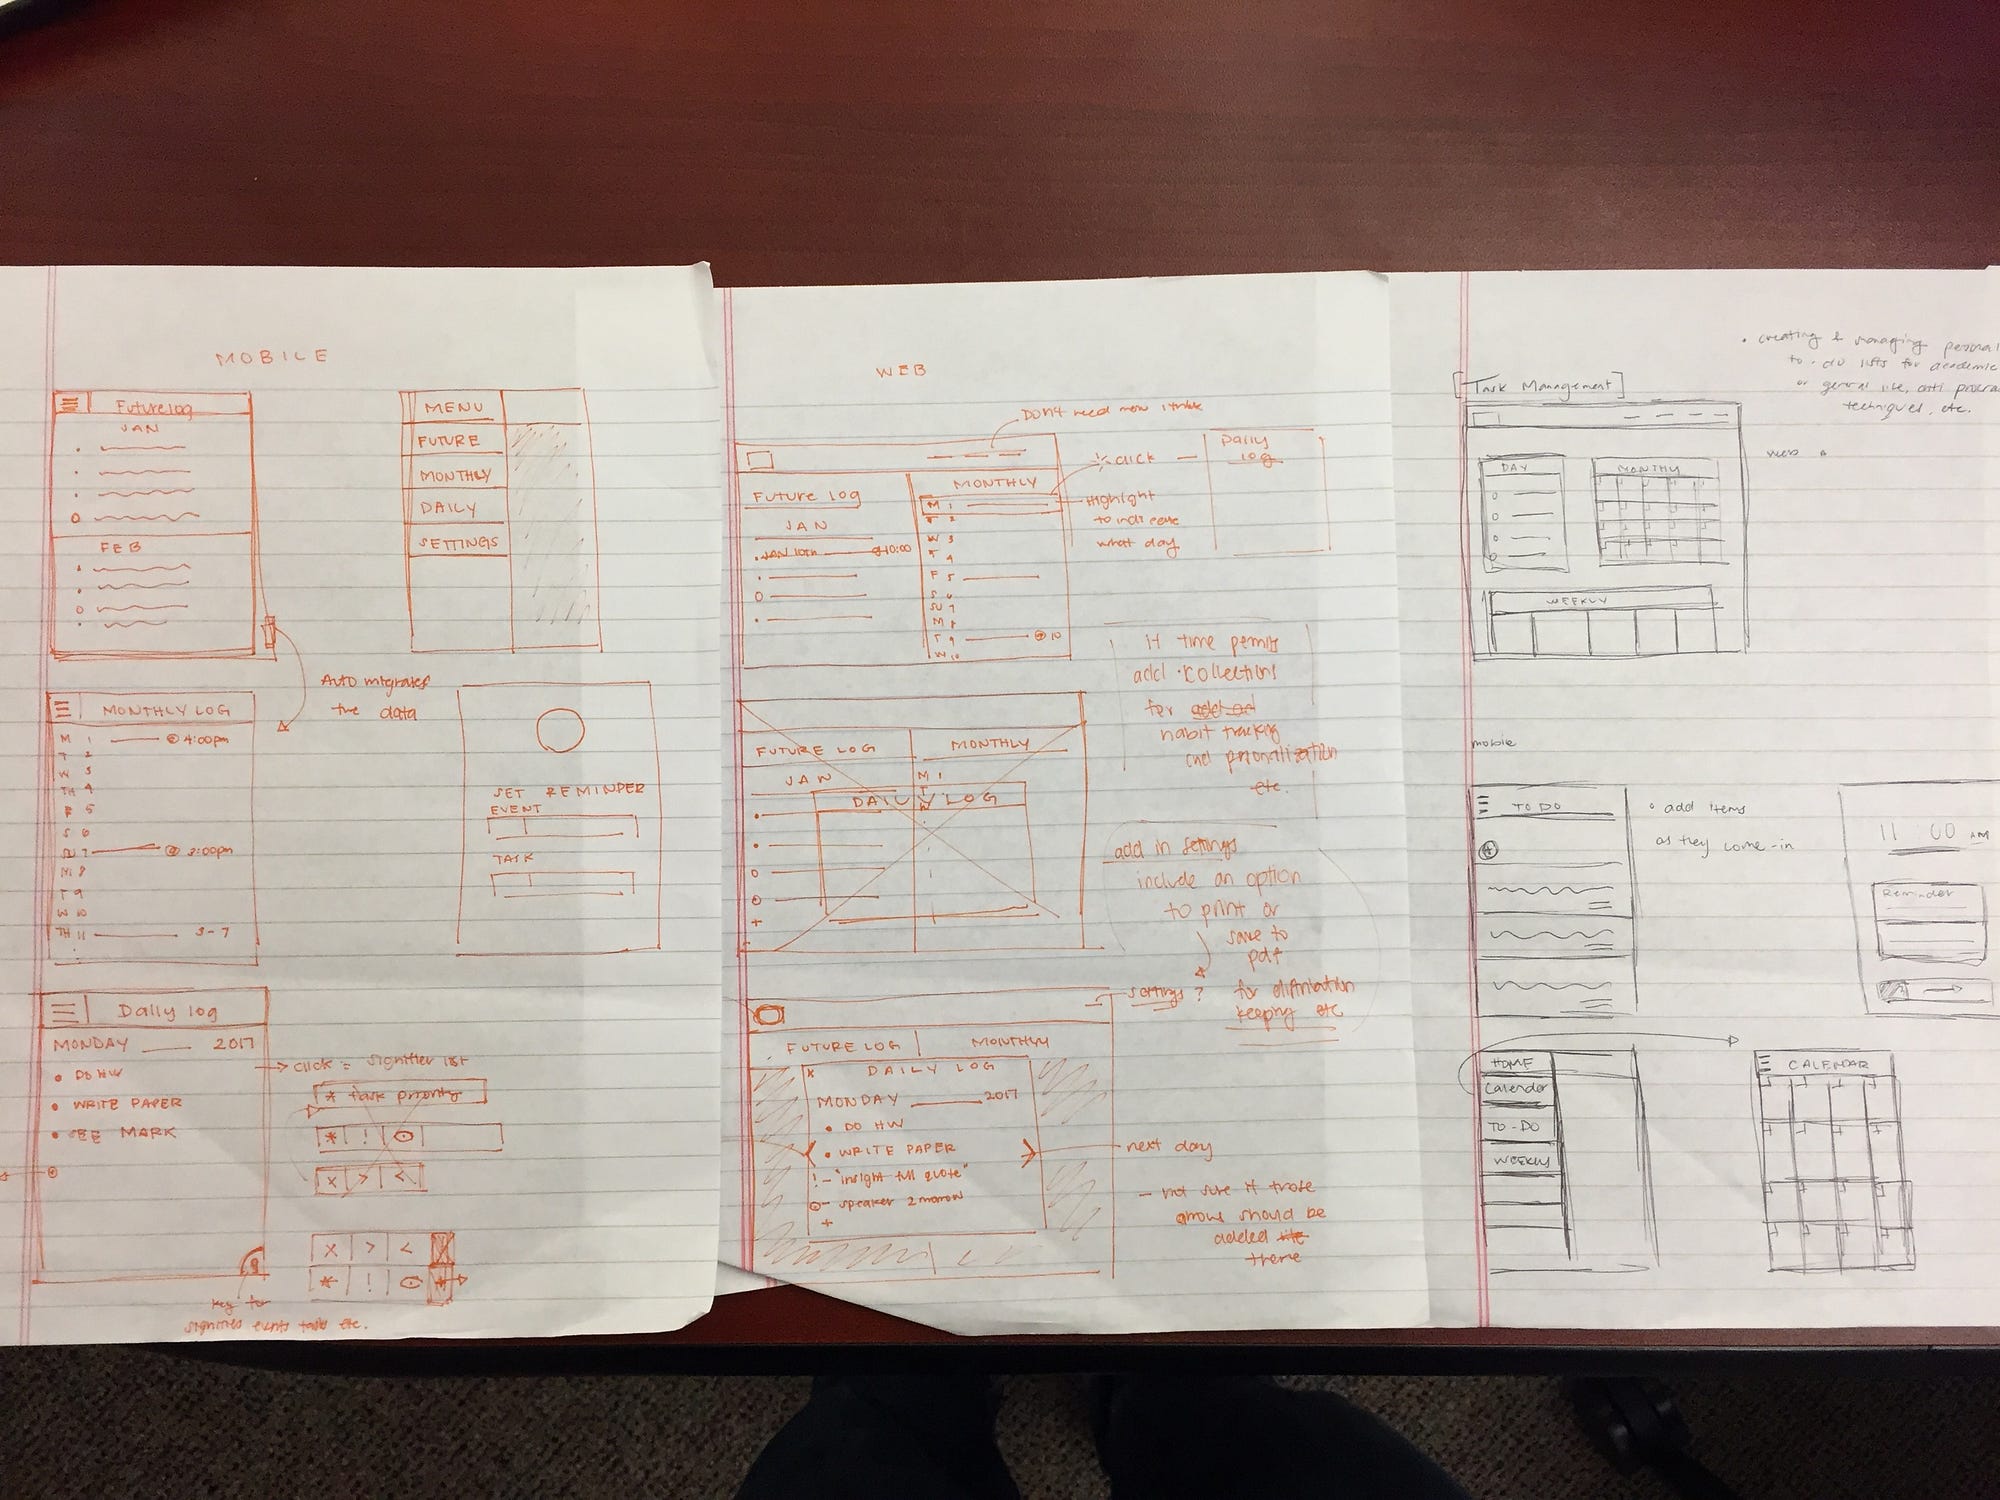 MOBILE
Future log
JAN
FEB
MENU
FUTURE
MONTHLY
DAILY
SETTINGS
Auto migrates
the data
MONTHLY LOG
M 1 @ 4:00pm
T 2
W 3
TH 4
F 5
S 6
SU 7 @ 3:00pm
M 8
T 9
W 10
TH 11 3-7
SET REMINDER
EVENT
TASK
Daily log
MONDAY 2017
• DO HW
• WRITE PAPER
• SEE MARK
click = signifier list
* task priority
* !
x > <
x > <
* !
key to
signifies events tasks etc.
WEB
Don't need menu
Future log
JAN
JAN 10th @10:00
MONTHLY
M 1
T 2
W 3
T 4
F 5
S 6
SU 7
M 8
T 9 @ 10
W 10
click
Daily
log
Highlight
to indicate
what day
If time permits
add collections
for
habit tracking
and personalization
etc.
FUTURE LOG
MONTHLY
JAN
M 1
T
W
DAILY LOG
+
add in settings
include an option
to print or
save to
pdf
settings ?
for distribution
keeping etc
FUTURE LOG
MONTHLY
x DAILY LOG
MONDAY 2017
• DO HW
• WRITE PAPER
! - "insight full quote"
- speaker 2morrow
+
next day
- not sure if those
arrows should be
added
there
• creating & managing personal
to-do lists for academic
or general life,
techniques, etc.
[Task Management]
web
DAY
MONTHLY
WEEKLY
mobile
TO DO
• add items
as they come-in
11:00 AM
Reminder
HOME
Calendar
TO-DO
WEEKLY
CALENDAR